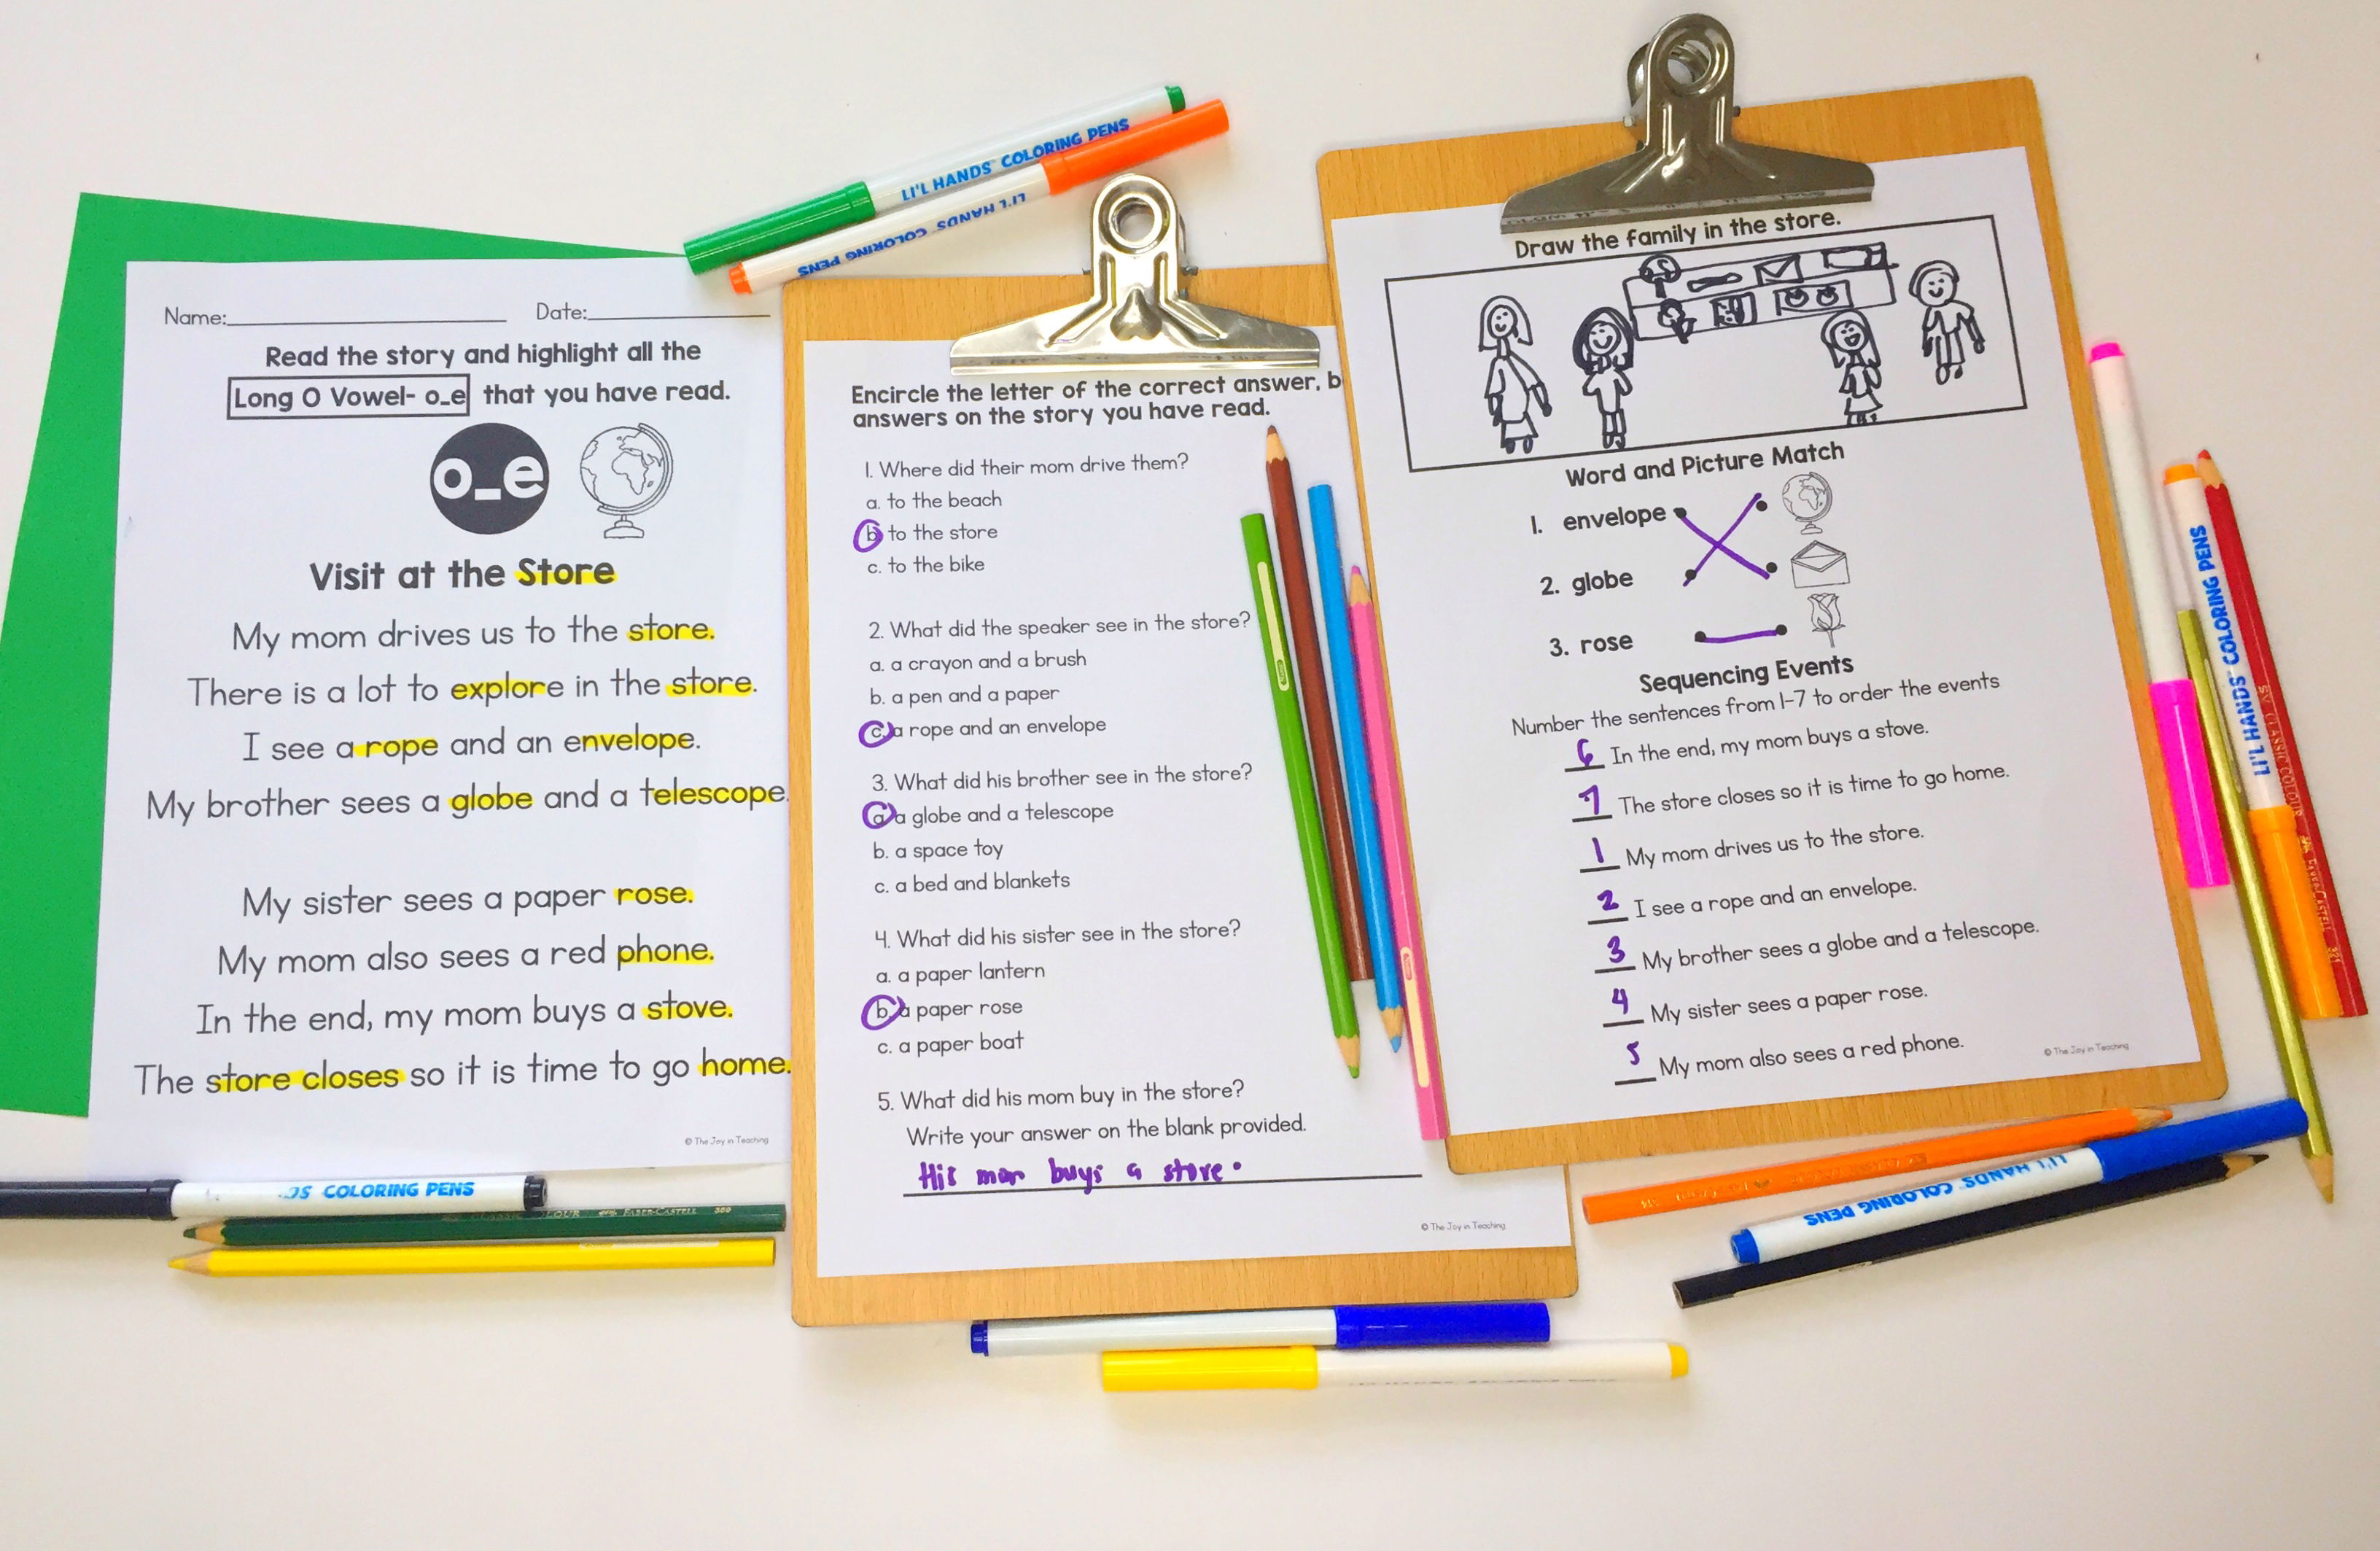 Name:
Date:
Read the story and highlight all the
Long O Vowel- o_e that you have read.
o_e
Visit at the Store
My mom drives us to the store.
There is a lot to explore in the store.
I see a rope and an envelope.
My brother sees a globe and a telescope.
My sister sees a paper rose.
My mom also sees a red phone.
In the end, my mom buys a stove.
The store closes so it is time to go home.
© The Joy in Teaching
LI'L HANDS COLORING PENS
LI'L HANDS COLORING PENS
Encircle the letter of the correct answer, b
answers on the story you have read.
1. Where did their mom drive them?
a. to the beach
b. to the store
c. to the bike
2. What did the speaker see in the store?
a. a crayon and a brush
b. a pen and a paper
c. a rope and an envelope
3. What did his brother see in the store?
a. a globe and a telescope
b. a space toy
c. a bed and blankets
4. What did his sister see in the store?
a. a paper lantern
b. a paper rose
c. a paper boat
5. What did his mom buy in the store?
Write your answer on the blank provided.
His mom buys a stove.
© The Joy in Teaching
Draw the family in the store.
Word and Picture Match
1. envelope
2. globe
3. rose
Sequencing Events
Number the sentences from 1-7 to order the events
6 In the end, my mom buys a stove.
7 The store closes so it is time to go home.
1 My mom drives us to the store.
2 I see a rope and an envelope.
3 My brother sees a globe and a telescope.
4 My sister sees a paper rose.
5 My mom also sees a red phone.
© The Joy in Teaching
LI'L HANDS COLORING PENS
DS COLORING PENS
FABER-CASTELL
LI'L HANDS COLORING PENS